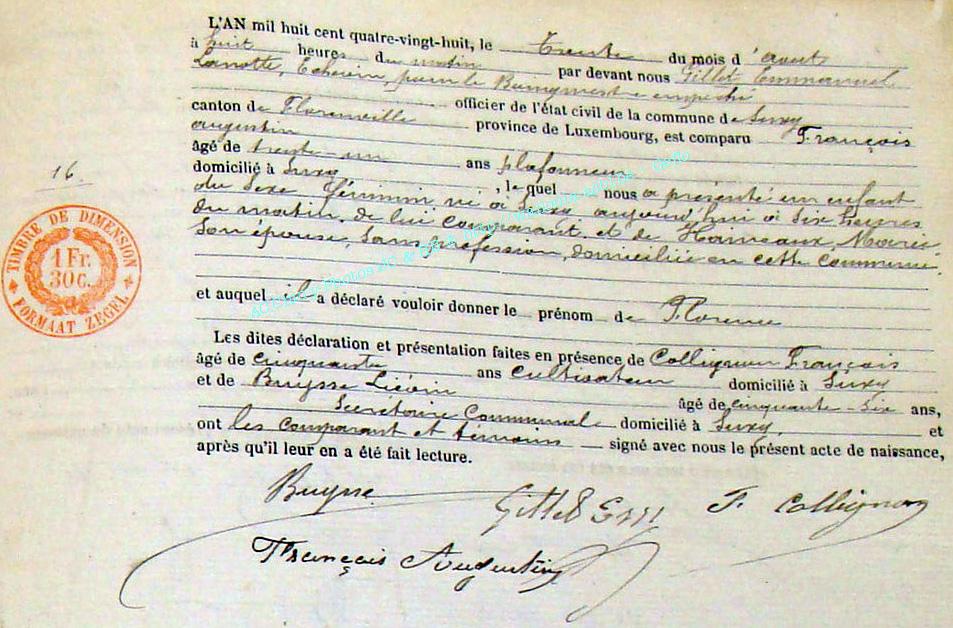 L'AN mil huit cent quatre-vingt-huit, le trente du mois d'août
à huit heures du matin par devant nous Gillet Emmanuel
Lanotte, Echevin, pour le Bourgmestre empêché
canton de Florenville officier de l'état civil de la commune de Suxy
province de Luxembourg, est comparu François
augustin
âgé de trente-un ans plafonneur
domicilié à Suxy, lequel nous a présenté un enfant
du Sexe féminin né à Suxy aujourd'hui à six heures
du matin, de lui comparant et de Haineaux, Marie
Son épouse, sans profession, domiciliée en cette commune.
et auquel il a déclaré vouloir donner le prénom de Florence
Les dites déclaration et présentation faites en présence de Collignon François
âgé de cinquante ans Cultivateur domicilié à Suxy
et de Buysse Liévin âgé de cinquante-six ans,
Secrétaire Communal domicilié à Suxy, et
ont les comparant et témoins signé avec nous le présent acte de naissance,
après qu'il leur en a été fait lecture.
16.
TIMBRE DE DIMENSION
1 Fr.
30 c.
FORMAAT ZEGEL
Buysse Gillet Em F. Collignon
François Augustin